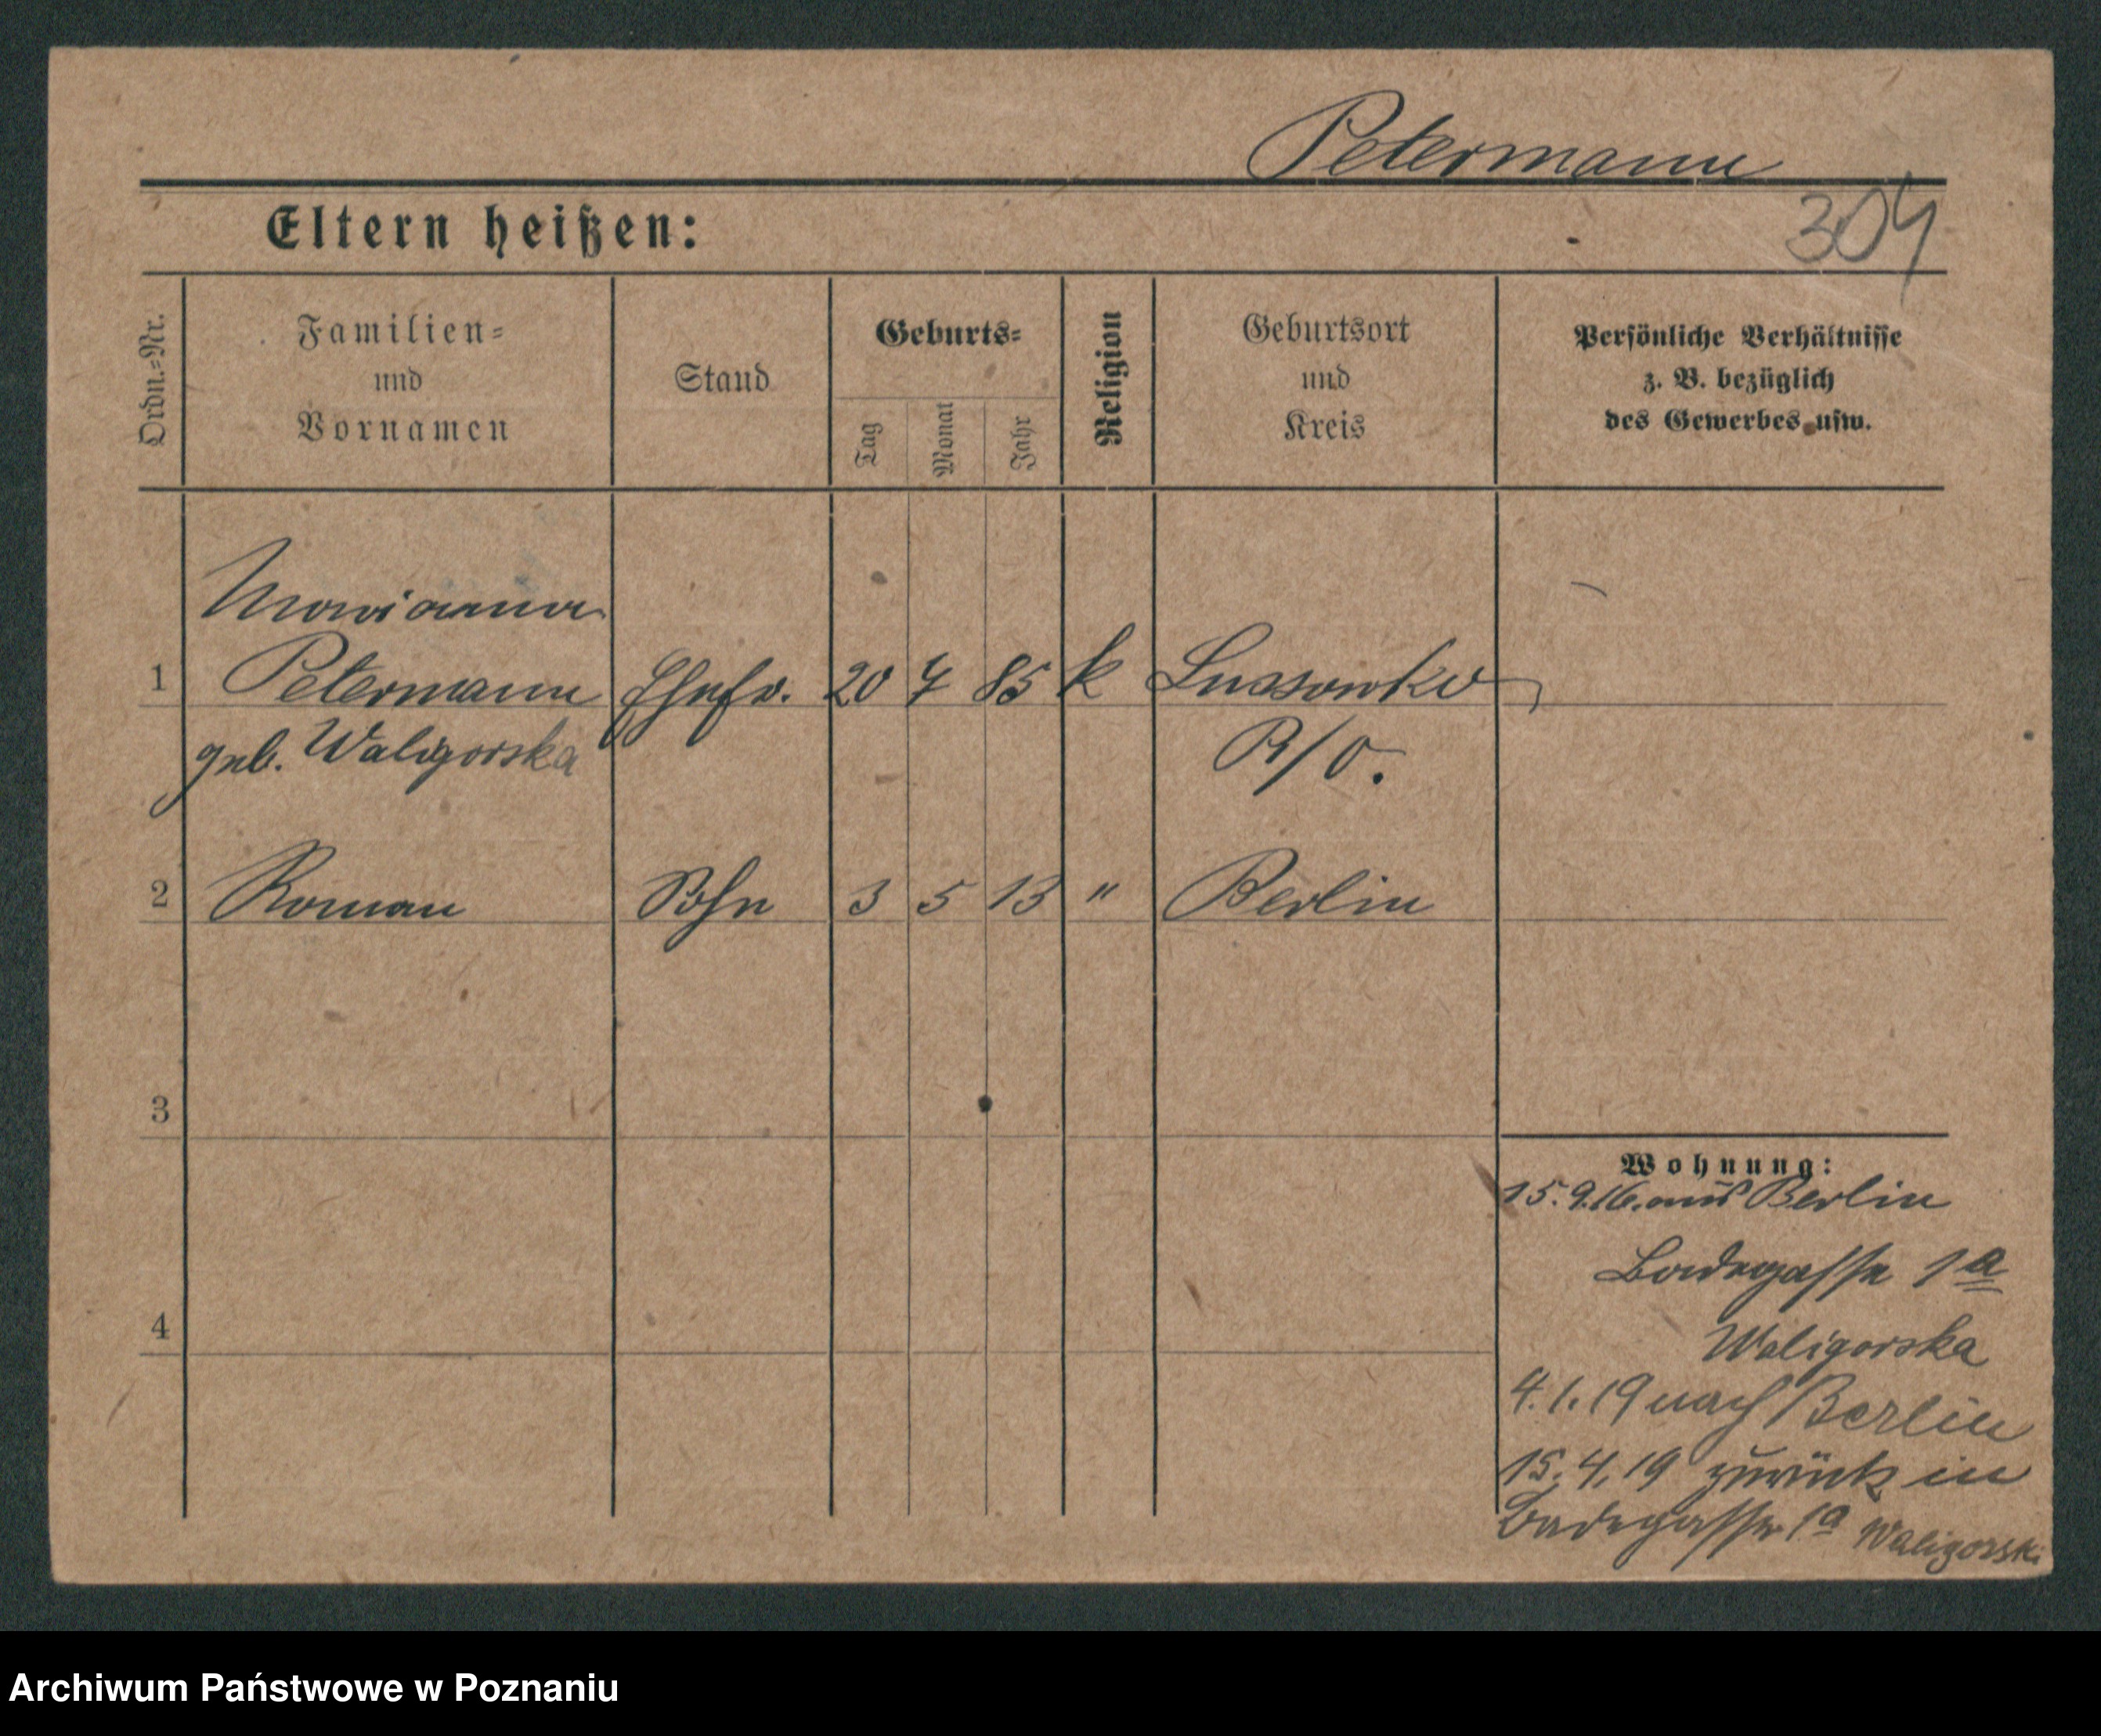 Petermann
304
Eltern heißen:
Ordn.-Nr.
Familien-
und
Vornamen
Stand
Geburts-
Tag
Monat
Jahr
Religion
Geburtsort
und
Kreis
Persönliche Verhältnisse
z. B. bezüglich
des Gewerbes usw.
Marianna
1 Petermann Ehefr. 20 7 85 k Lussowko
geb. Waligorska P/O.
2 Roman Sohn 3 5 13 " Berlin
3
4
Wohnung:
15.9.16. aus Berlin
Badegasse 1a
Waligorska
4.1.19 nach Berlin
15.4.19 zurück in
Badegasse 1a Waligorski
Archiwum Państwowe w Poznaniu